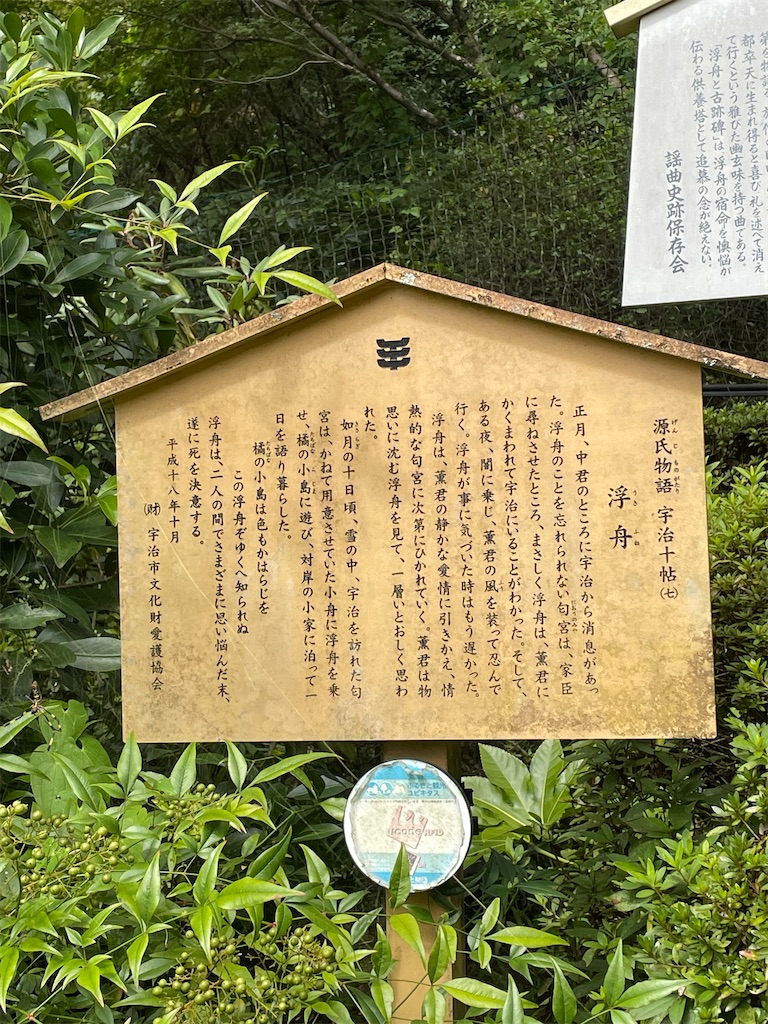 源氏物語 宇治十帖(七)
浮舟
正月、中君のところに宇治から消息があっ
た。浮舟のことを忘れられない匂宮は、家臣
に尋ねさせたところ、まさしく浮舟は、薫君に
かくまわれて宇治にいることがわかった。そして、
ある夜、闇に乗じ、薫君の風を装って忍んで
行く。浮舟が事に気づいた時はもう遅かった。
浮舟は、薫君の静かな愛情に引きかえ、情
熱的な匂宮に次第にひかれていく。薫君は物
思いに沈む浮舟を見て、一層いとおしく思わ
れた。
如月の十日頃、雪の中、宇治を訪れた匂
宮は、かねて用意させていた小舟に浮舟を乗
せ、橘の小島に遊び、対岸の小家に泊って一
日を語り暮らした。
橘の小島は色もかはらじを
この浮舟ぞゆくへ知られぬ
浮舟は、二人の間でさまざまに思い悩んだ末、
遂に死を決意する。
平成十八年十月
(財)宇治市文化財愛護協会
都卒天に生まれ得ると喜び礼を述べて消え
て行くという雅びた幽玄味を持つ曲である。
「浮舟と古跡碑」は浮舟の宿命を懊悩が
伝わる供養塔として追慕の念が絶えない。
謡曲史跡保存会
ユビキタス